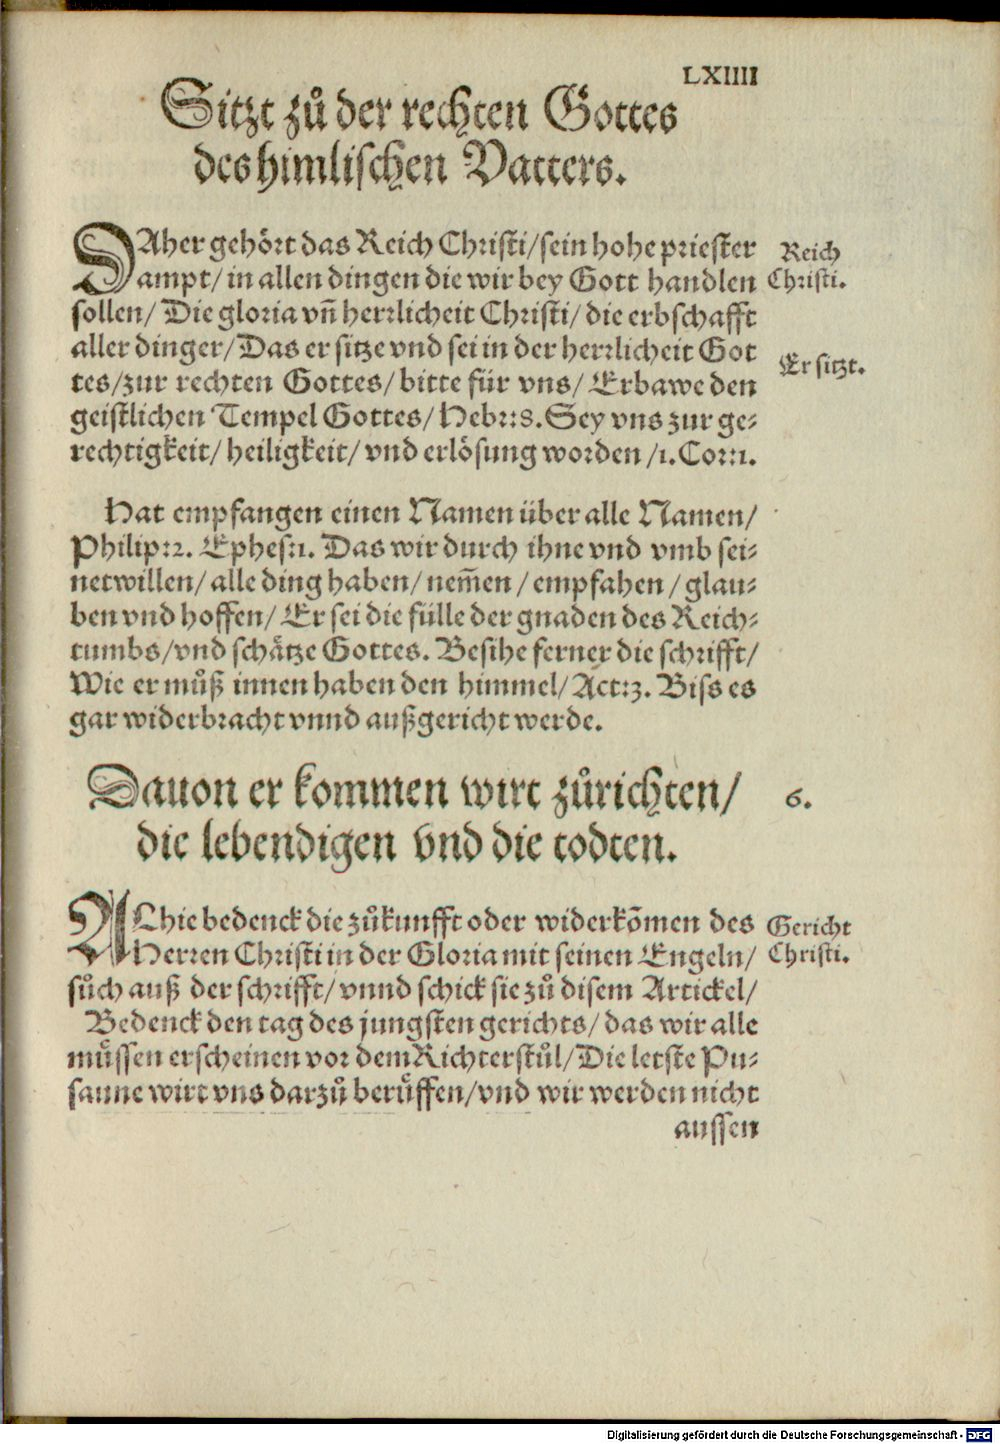 LXIIII
Sitzt zů der rechten Gottes
des himlischen Vatters.
DAher gehört das Reich Christi/sein hohe priester
ampt/ in allen dingen die wir bey Gott handlen
sollen/ Die gloria vñ herrlicheit Christi/ die erbschafft
aller dinger/ Das er sitze vnd sei in der herrlicheit Got
tes/zur rechten Gottes/ bitte für vns/ Erbawe den
geistlichen Tempel Gottes/ Hebr:8. Sey vns zur ge⸗
rechtigkeit/ heiligkeit/ vnd erlösung worden /1. Cor:1.
Reich
Christi.
Er sitzt.
Hat empfangen einen Namen über alle Namen/
Philip:2. Ephes:1. Das wir durch ihne vnd vmb sei⸗
netwillen/ alle ding haben/ nem̃en / empfahen / glau⸗
ben vnd hoffen/ Er sei die fülle der gnaden des Reich⸗
tumbs/vnd schätze Gottes. Besihe ferner die schrifft/
Wie er můß innen haben den himmel/ Act:3. Biss es
gar widerbracht vnnd außgericht werde.
Dauon er kommen wirt zůrichten/
die lebendigen vnd die todten.
6.
ALhie bedenck die zůkunfft oder widerkõmen des
Herren Christi in der Gloria mit seinen Engeln/
sůch auß der schrifft/ vnnd schick sie zů disem Artickel/
Bedenck den tag des jungsten gerichts/ das wir alle
müssen erscheinen vor dem Richterstůl/ Die letste Pu⸗
saune wirt vns darzů berüffen/vnd wir werden nicht
aussen
Gericht
Christi.
Digitalisierung gefördert durch die Deutsche Forschungsgemeinschaft - DFG